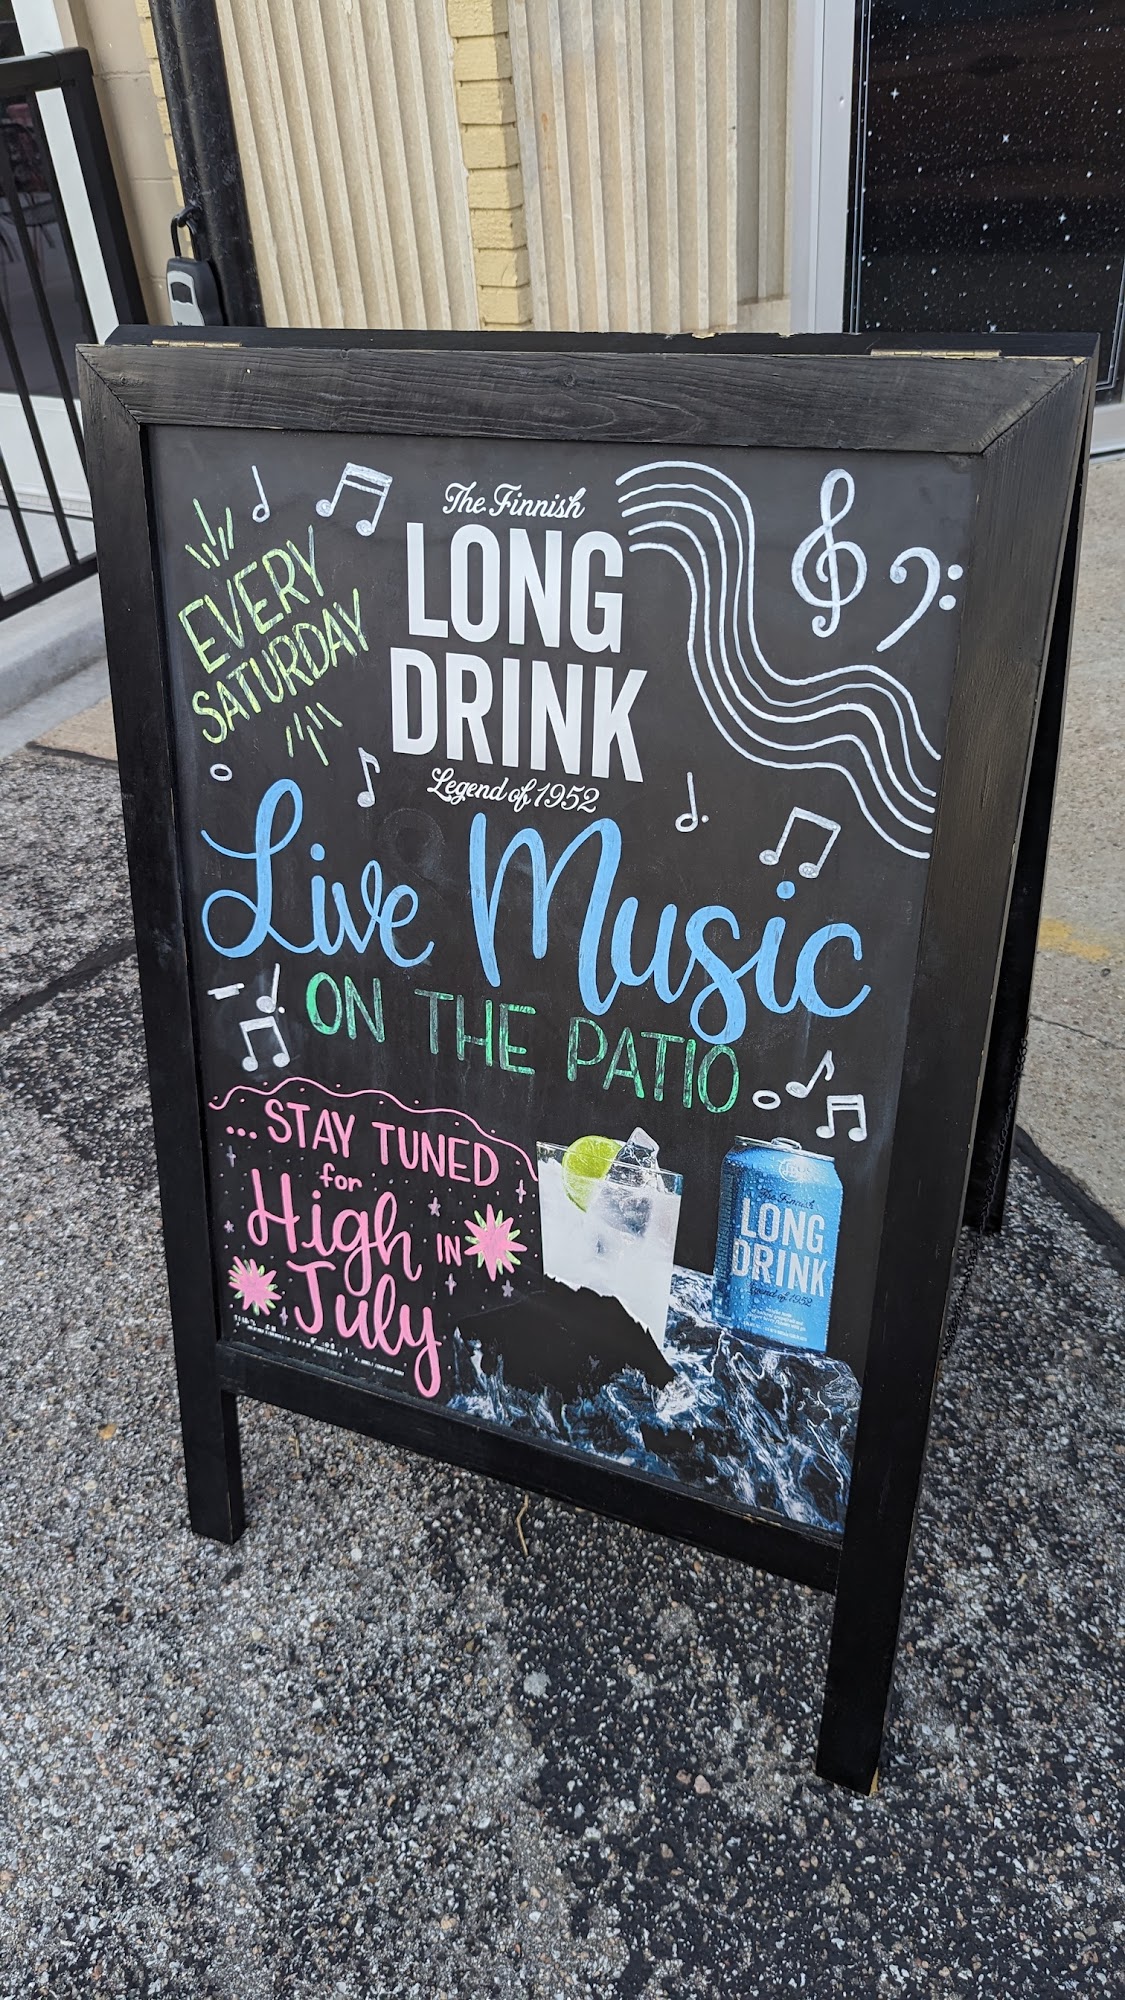 EVERY
SATURDAY
The Finnish
LONG
DRINK
Legend of 1952
Live Music
ON THE PATIO
...STAY TUNED
for
High IN
July
The Finnish
LONG
DRINK
Legend of 1952